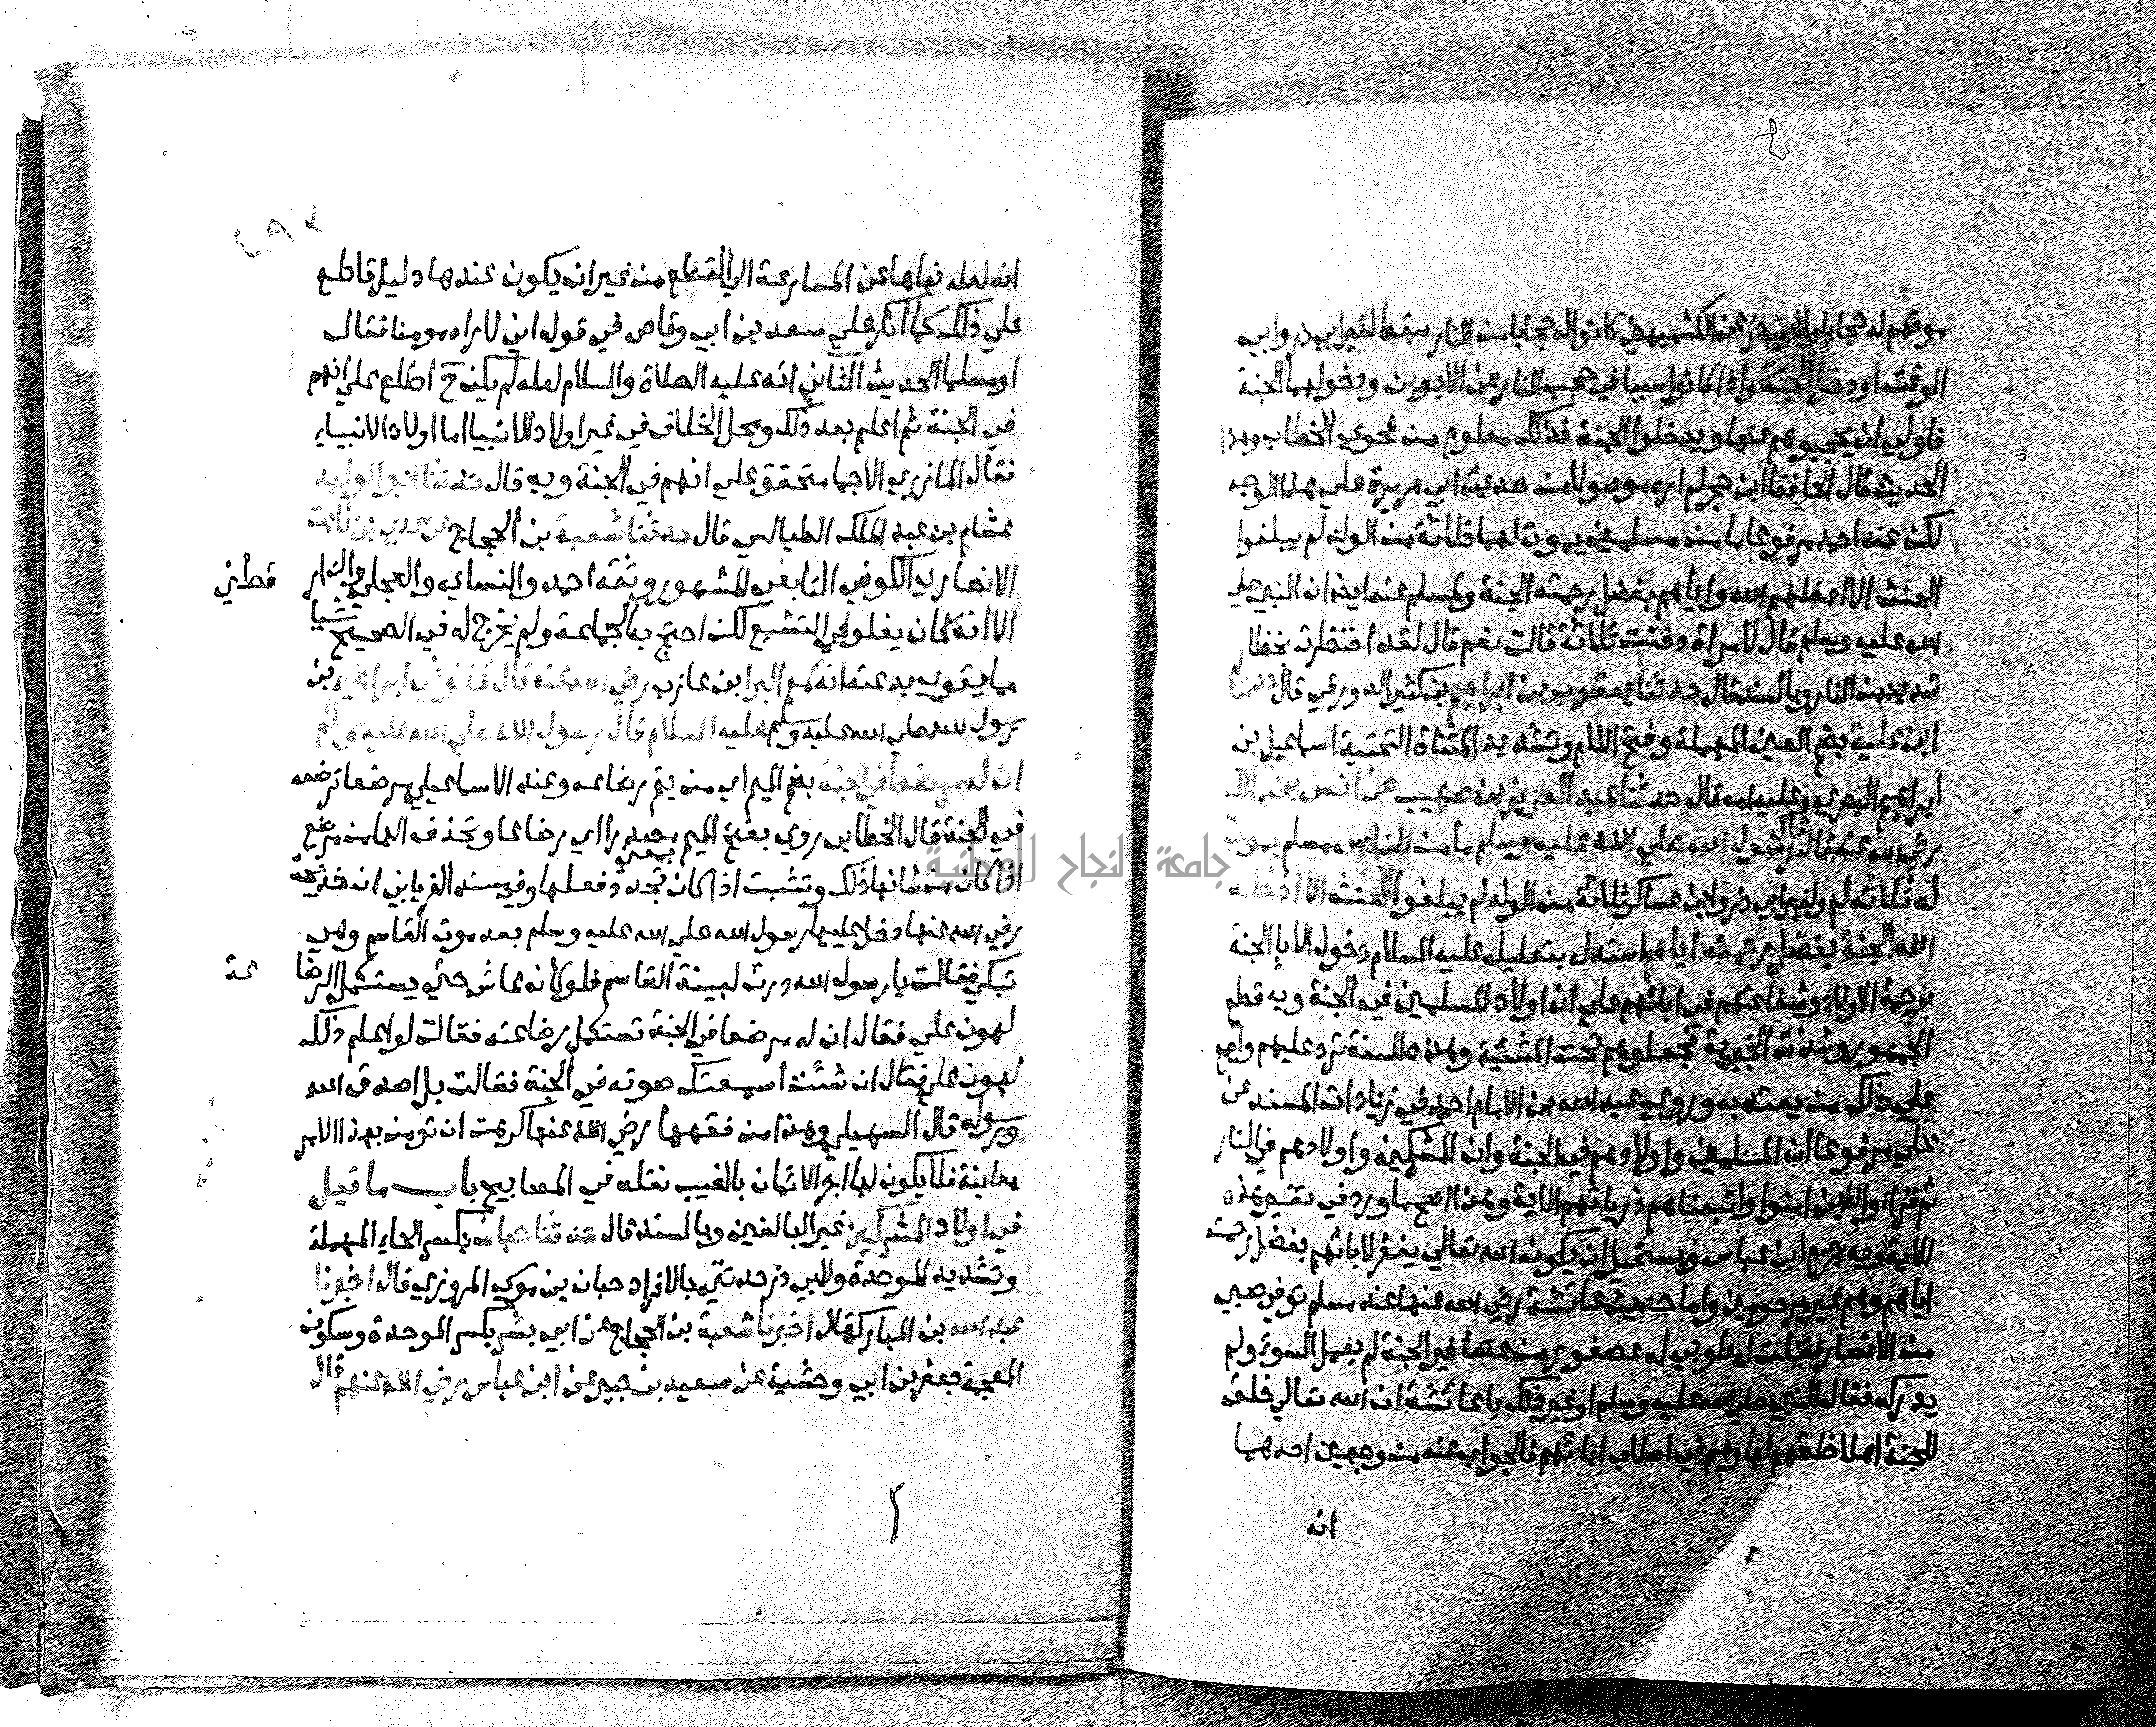 موتهم له حجابا ولابي ذر عن الكشميهني كانوا له حجابا من النار سقط لغير ابي ذر وابي
الوقت او دخل الجنة واذا كانوا سببا في حجب النار عن الابوين ودخولهما الجنة
فاولي ان يحجبوا هم عنها ويدخلوا الجنة فذلك معلوم من فحوي الخطاب وهذا
الحديث قال الحافظ ابن حجر لم اره موصولا من حديث ابي هريرة علي هذا الوجه
لكن عند احمد مرفوعا ما من مسلمين يموت لهما ثلاثة من الولد لم يبلغوا
الحنث الا ادخلهم الله واياهم بفضل رحمته الجنة ولمسلم عنه ايضا ان النبي صلي
الله عليه وسلم قال لامراة دفنت ثلاثة قالت نعم قال لقد احتظرت بحظار
شديد من النار وبالسند قال حدثنا يعقوب بن ابراهيم بن كثير الدورقي قال حدثنا
ابن علية بضم العين المهملة وفتح اللام وتشديد المثناة التحتية اسماعيل بن
ابراهيم البصري وعلية امه قال حدثنا عبد العزيز بن صهيب عن انس بن مالك
رضي الله عنه قال قال رسول الله صلي الله عليه وسلم ما من الناس مسلم يموت
له ثلاثه لم ولغير ابي ذر وابن عساكر ثلاثة من الولد لم يبلغوا الحنث الا ادخله
الله الجنة بفضل رحمته اياهم استدل بتعليله عليه السلام دخول الابا الجنة
برحمة الاولاد وشفاعتهم في ابائهم علي ان اولاد المسلمين في الجنة وبه قطع
الجمهور وشذت الجبرية فجعلوهم تحت المشيئة وهذه السنة ترد عليهم واجمع
علي ذلك من يعتد به وروي عبد الله بن الامام احمد في زيادات المسند عن
علي مرفوعا ان المسلمين واولادهم في الجنة وان المشركين واولادهم في النار
ثم قرا والذين امنوا واتبعناهم ذرياتهم الاية وهذا اصح ما ورد في تفسير هذه
الاية وبه جزم ابن عباس ويستحيل ان يكون الله تعالي يغفر لابائهم بفضل رحمته
اياهم وهم غير مرحومين واما حديث عائشة رضي الله عنها عند مسلم توفي صبي
من الانصار فقلت له طوبي له عصفور من عصافير الجنة لم يعمل السوء ولم
يدركه فقال النبي صلي الله عليه وسلم او غير ذلك يا عائشة ان الله تعالي خلق
للجنة اهلا خلقهم لها وهم في اصلاب ابائهم فالجواب عنه من وجهين احدهما
انه
انه لعله نهاها عن المسارعة الي القطع من غير ان يكون عندها دليل قاطع
علي ذلك كما انكر علي سعد بن ابي وقاص في قوله اني لاراه مومنا فقال
او مسلما الحديث الثاني انه عليه الصلاة والسلام لعله لم يكن ح اطلع علي انهم
في الجنة ثم اعلم بعد ذلك ومحل الخلاف في غير اولاد الانبيا اما اولاد الانبياء
فقال المازري الاجماع متحقق علي انهم في الجنة وبه قال حدثنا ابو الوليد
هشام بن عبد الملك الطيالسي قال حدثنا شعبة بن الحجاج عن عدي بن ثابت
الانصاري الكوفي التابعي المشهور وثقه احمد والنسائي والعجلي والدار قطني
الا انه كان يغلو في التشيع لكن احتج به الجماعة ولم يخرج له في الصحيح شيا
مما يقوي بدعته انه سمع البرا بن عازب رضي الله عنه قال لما توفي ابراهيم بن
رسول الله صلي الله عليه وسلم عليه السلام قال رسول الله صلي الله عليه وسلم
ان له مرضعا في الجنة بضم الميم اي من يتم رضاعه وعند الاسماعيلي مرضعا ترضعه
في الجنة قال الخطابي روي بفتح الميم مصدرا اي رضاعا وتحذف الها من مرضع
اذا كان من شانها ذلك وتثبت اذا كان بمعني تجدد فعلها وفي مسند الفريابي ان خديجة
رضي الله عنها دخل عليها رسول الله صلي الله عليه وسلم بعد موت القاسم وهي
تبكي فقالت يا رسول الله درت لبينة القاسم فلو كان عاش حتي يستكمل الرضا عة
لهون علي فقال ان له مرضعا في الجنة تستكمل رضاعته فقالت لو اعلم ذلك
لهون علي فقال ان شئت اسمعتك صوته في الجنة فقالت بل اصدق الله
ورسوله قال السهيلي وهذا من فقهها رضي الله عنها كرهت ان تومن بهذا الامر
معاينة فلا يكون لها اجر الايمان بالغيب نقله في المصابيح باب ما قيل
في اولاد المشركين غير البالغين وبالسند قال حدثنا حبان بكسر الحاء المهملة
وتشديد الموحدة ولابي ذر حدثني بالافراد حبان بن موسي المروزي قال اخبرنا
عبد الله بن المبارك قال اخبرنا شعبة بن الحجاج عن ابي بشر بكسر الموحدة وسكون
المعجمة جعفر بن ابي وحشية عن سعيد بن جبير عن ابن عباس رضي الله عنهم قال
جامعة النجاح الوطنية